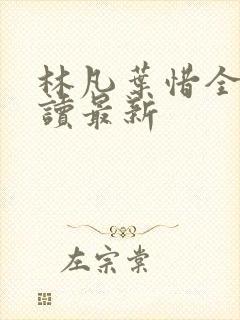 林凡葉惜全
讀最新
左宗棠